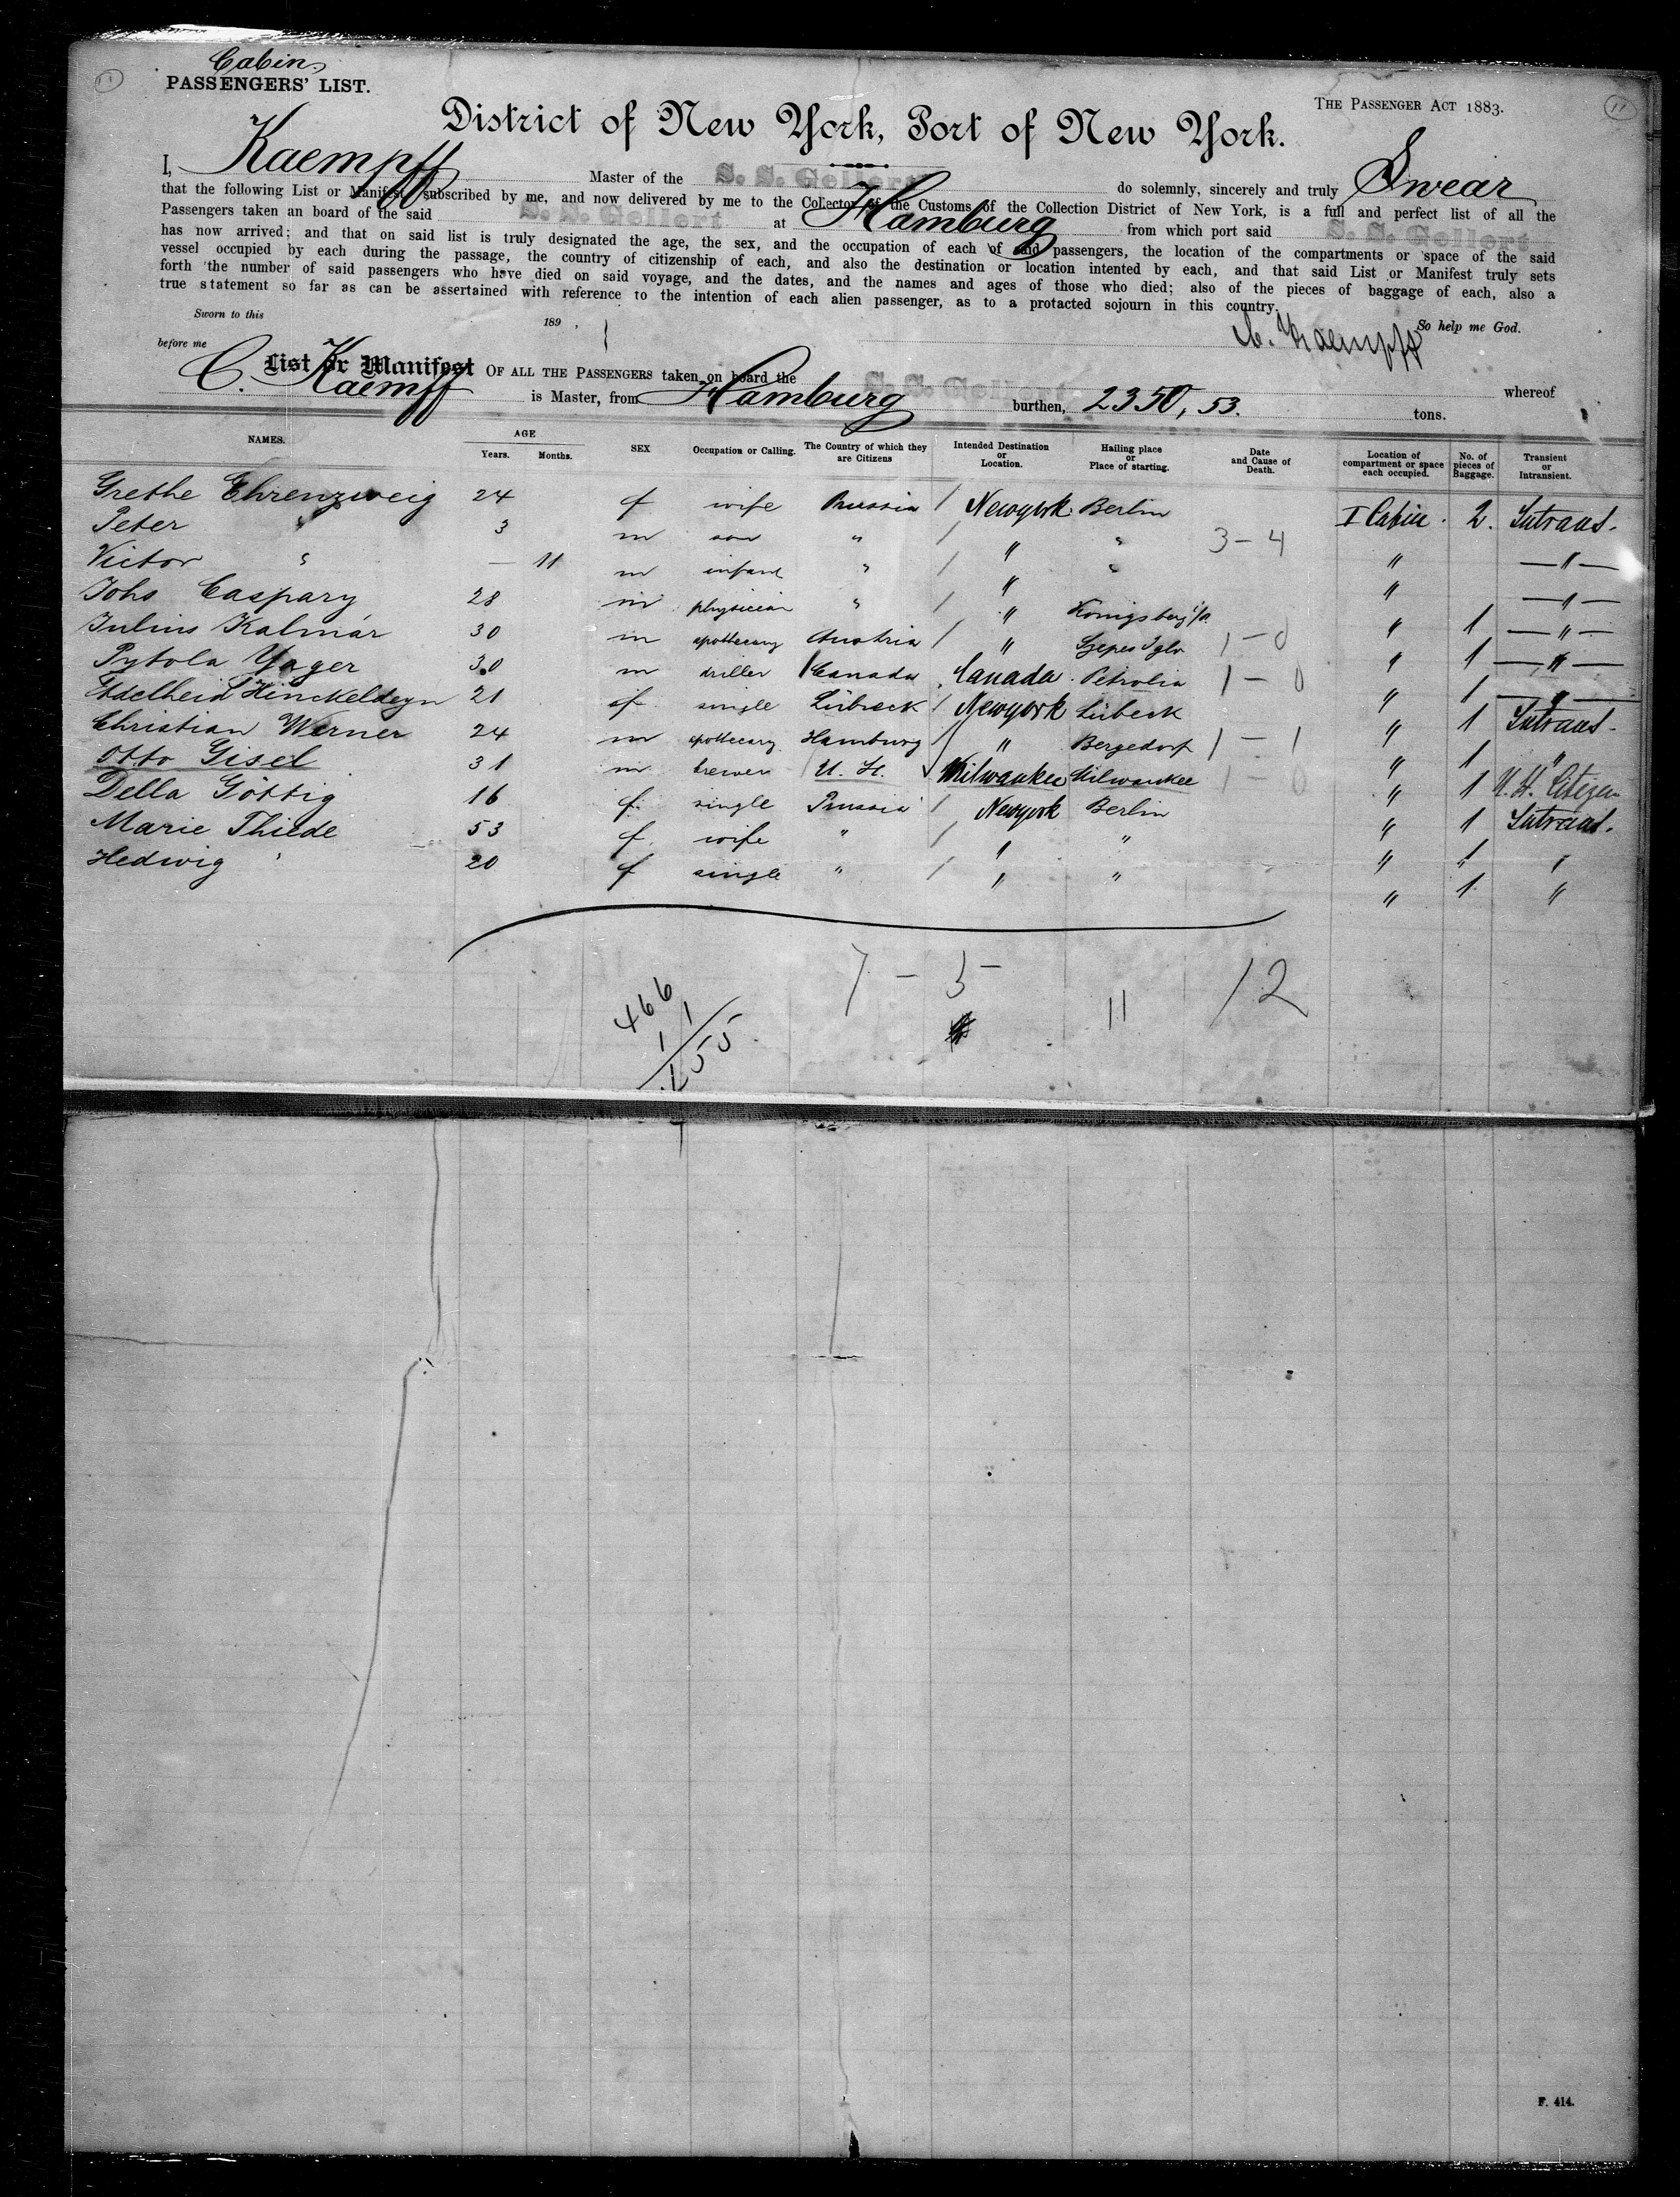 Cabin
PASSENGERS' LIST.
THE PASSENGER ACT 1883.
11
11
District of New York, Port of New York.
I, Kaempff Master of the S. S. Gellert do solemnly, sincerely and truly Swear
that the following List or Manifest, subscribed by me, and now delivered by me to the Collector of the Customs of the Collection District of New York, is a full and perfect list of all the
Passengers taken an board of the said S. S. Gellert at Hamburg from which port said S. S. Gellert
has now arrived; and that on said list is truly designated the age, the sex, and the occupation of each of said passengers, the location of the compartments or space of the said
vessel occupied by each during the passage, the country of citizenship of each, and also the destination or location intented by each, and that said List or Manifest truly sets
forth the number of said passengers who have died on said voyage, and the dates, and the names and ages of those who died; also of the pieces of baggage of each, also a
true statement so far as can be assertained with reference to the intention of each alien passenger, as to a protacted sojourn in this country.
Sworn to this 189 , So help me God.
before me C. Kaempff
List or Manifest OF ALL THE PASSENGERS taken on board the S. S. Gellert whereof
C. Kaempff is Master, from Hamburg burthen, 2350, 53. tons.
NAMES. AGE Years. Months. SEX Occupation or Calling. The Country of which they are Citizens Intended Destination or Location. Hailing place or Place of starting. Date and Cause of Death. Location of compartment or space each occupied. No. of pieces of Baggage. Transient or Intransient.
Grethe Ehrenzweig 24 f wife Prussia / Newyork Berlin I Cabin. 2. Intrans.
Peter " 3 m son " / " " 3 - 4 " — " —
Victor " — 11 m infant " / " " " — " —
Johs Caspary 28 m physician " / " Königsberg i/P. " 1 — " —
Julius Kalmár 30 m apothecary Austria / " Szepes Iglo 1 - 0 " 1 — " —
Pytola Yager 30 m driller / Canada Canada. Petrolia 1 - 0 " 1 — " —
Adelheid Hinckeldeyn 21 f single Lübeck / Newyork Lübeck " 1 Intrans.
Christian Werner 24 m apothecary Hamburg / " Bergedorf 1 - 1 " 1 "
Otto Gisel 31 m brewer / U. St. Milwaukee Milwaukee 1 - 0 " 1 U. St. Citizen
Della Göttig 16 f. single Prussia / Newyork Berlin " 1 Intrans.
Marie Thiede 53 f. wife " / " " " 1 "
Hedwig " 20 f single " / " " " 1 "
7 - 5 -
11
12
466
11
F. 414.